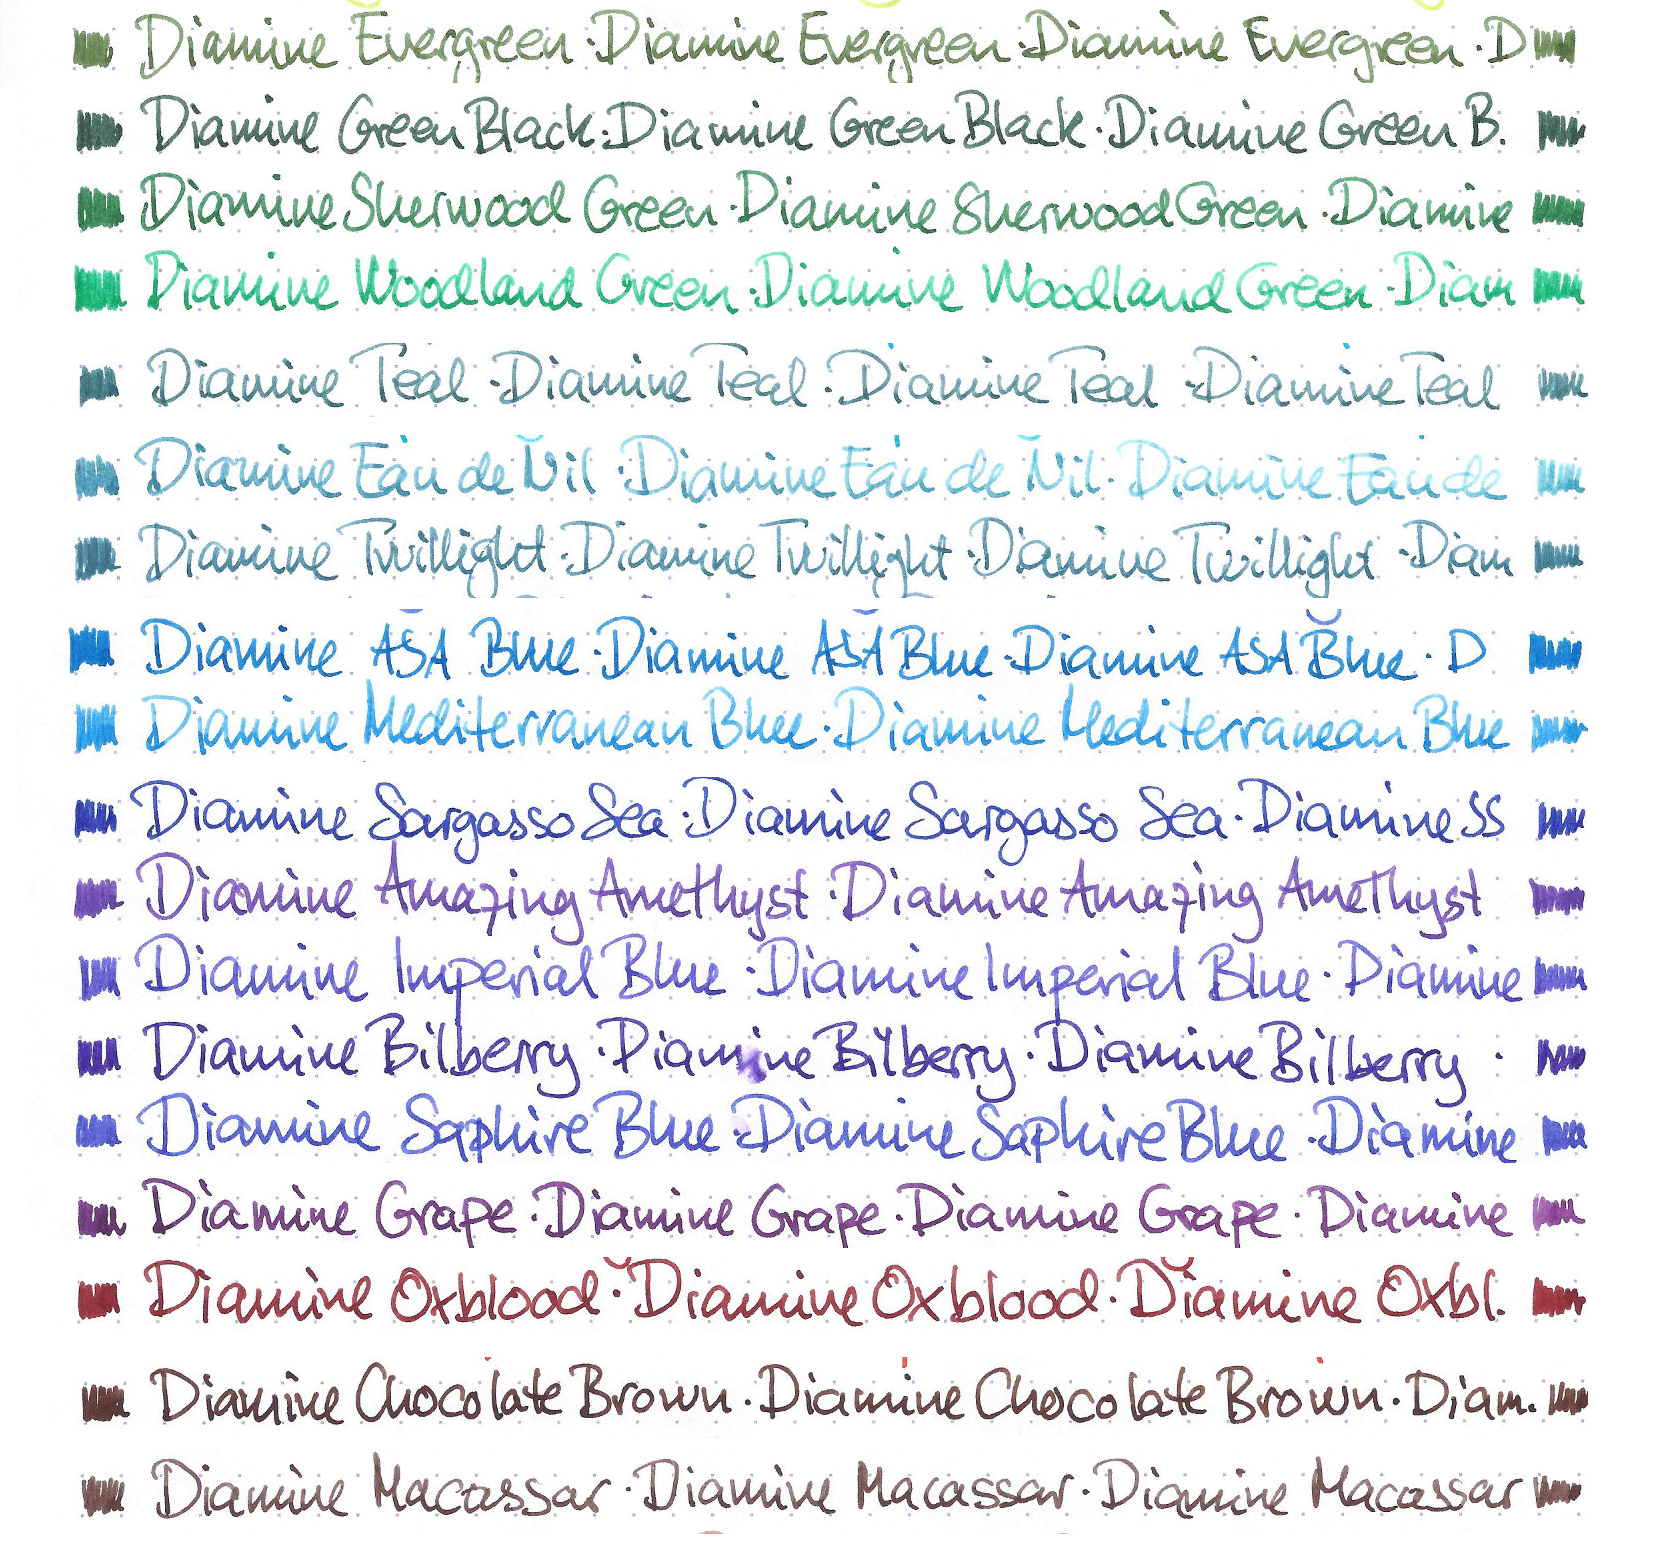 Diamine Evergreen · Diamine Evergreen · Diamine Evergreen · D
Diamine Green Black · Diamine Green Black · Diamine Green B.
Diamine Sherwood Green · Diamine Sherwood Green · Diamine
Diamine Woodland Green · Diamine Woodland Green · Diam
Diamine Teal · Diamine Teal · Diamine Teal · Diamine Teal
Diamine Eau de Nil · Diamine Eau de Nil · Diamine Eau de
Diamine Twillight · Diamine Twillight · Diamine Twillight · Diam
Diamine ASA Blue · Diamine ASA Blue · Diamine ASA Blue · D
Diamine Mediterranean Blue · Diamine Mediterranean Blue
Diamine Sargasso Sea · Diamine Sargasso Sea · Diamine SS
Diamine Amazing Amethyst · Diamine Amazing Amethyst
Diamine Imperial Blue · Diamine Imperial Blue · Diamine
Diamine Bilberry · Diamine Bilberry · Diamine Bilberry ·
Diamine Saphire Blue · Diamine Saphire Blue · Diamine
Diamine Grape · Diamine Grape · Diamine Grape · Diamine
Diamine Oxblood · Diamine Oxblood · Diamine Oxbl.
Diamine Chocolate Brown · Diamine Chocolate Brown · Diam.
Diamine Macassar · Diamine Macassar · Diamine Macassar